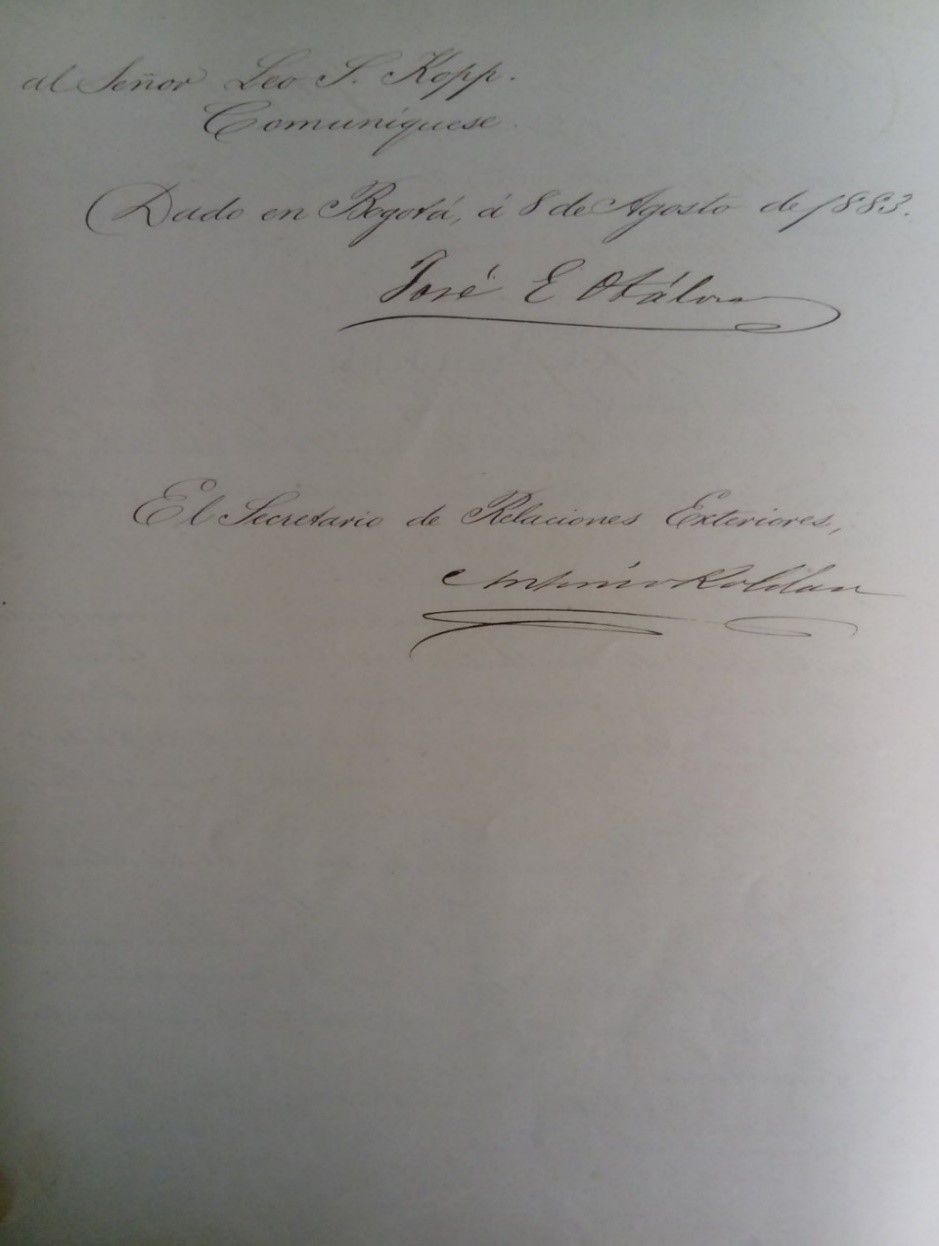 al Señor Leo S. Kopp.
Comuníquese.
Dado en Bogotá, á 8 de Agosto de 1883.
José E Otálora
El Secretario de Relaciones Exteriores,
Antonio Roldan